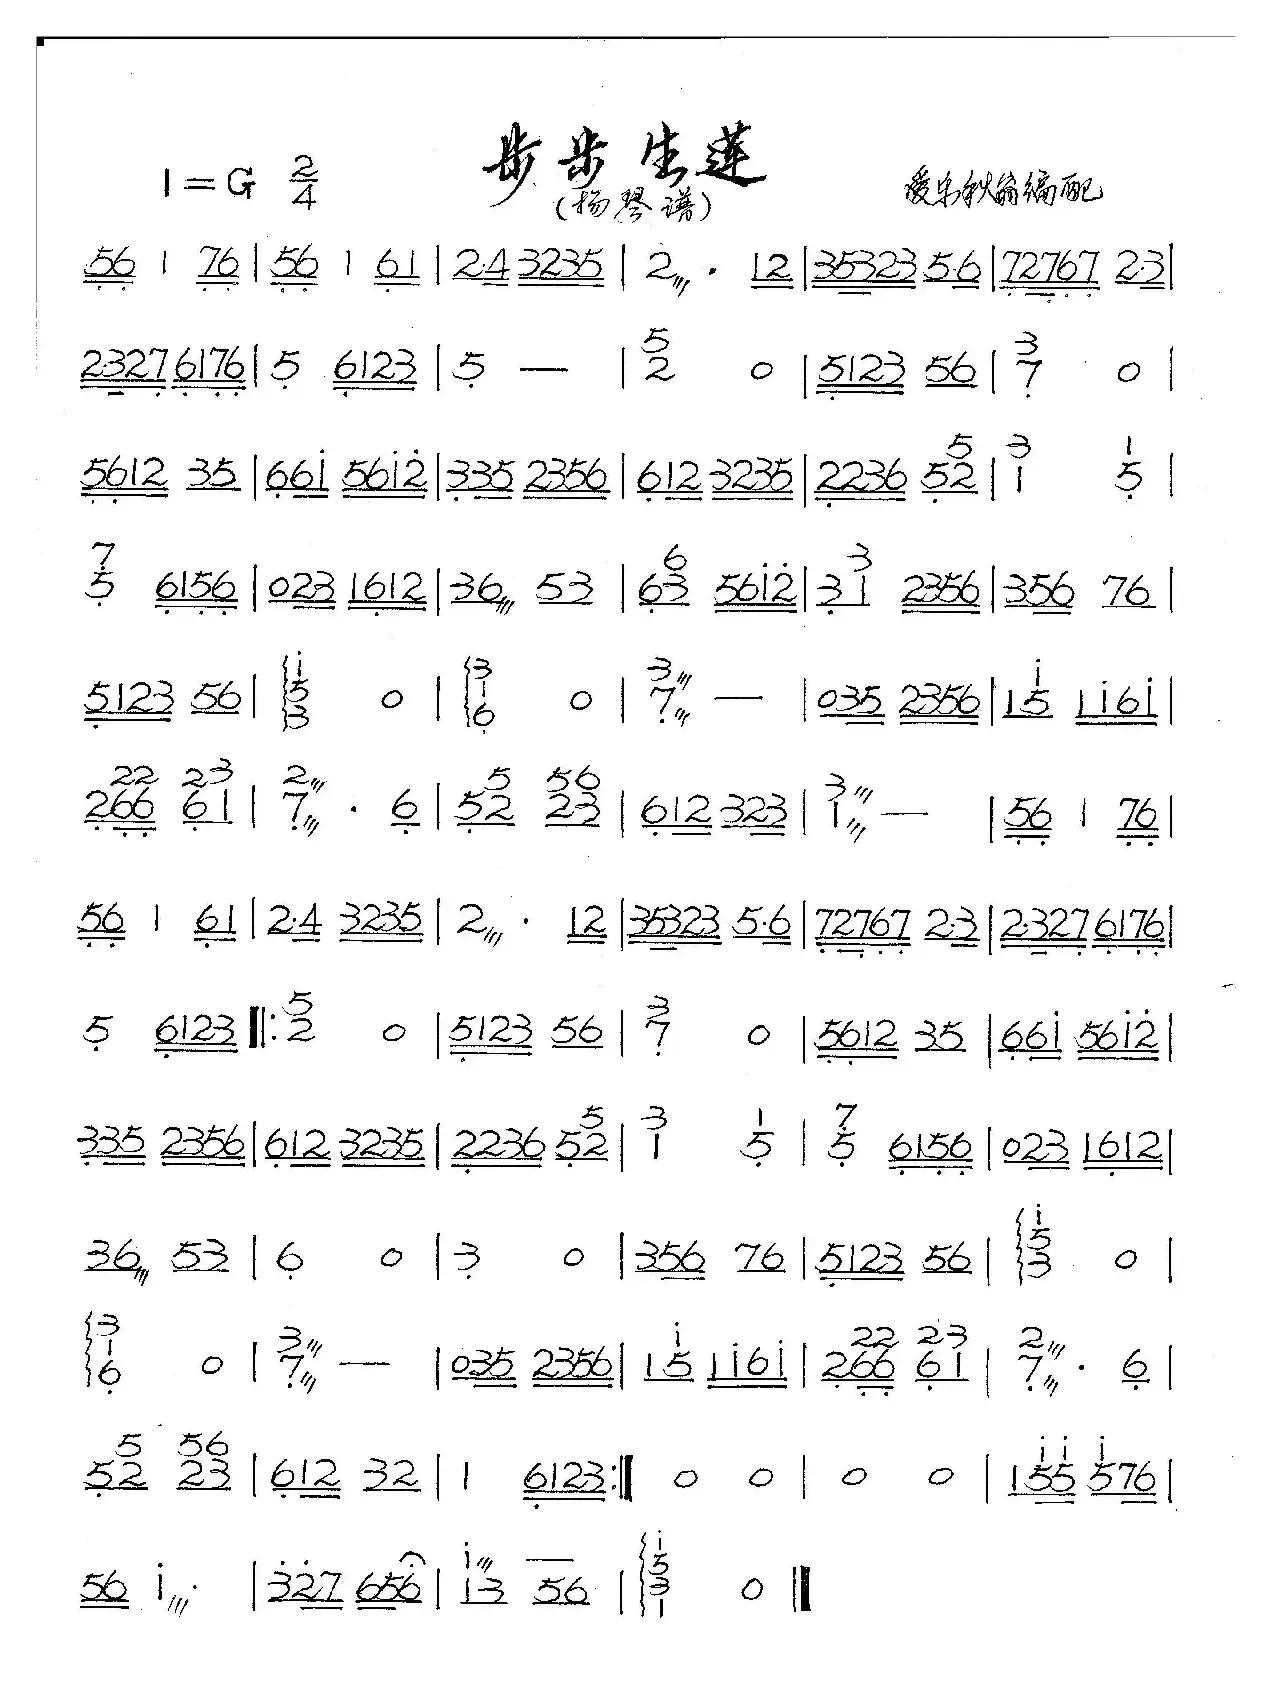 步步生莲
1=G 2/4
(扬琴谱)
爱乐秋翁编配
56 1 76 | 56 1 61 | 2·4 3235 | 2 · 12 | 35323 5·6 | 72767 2·3 |
2327 6176 | 5 6123 | 5 — | 5/2 0 | 5123 56 | 3/7 0 |
5612 35 | 661 5612 | 335 2356 | 612 3235 | 2236 5 5/2 | 3/1 1/5 |
7/5 6156 | 023 1612 | 36 53 | 6 6/3 5612 | 3 3/1 2356 | 356 76 |
5123 56 | 1/5/3 0 | 3/1/6 0 | 3/7 — | 035 2356 | 1 1/5 1161 |
2 22/66 23/61 | 2/7 · 6 | 5 5/2 56/23 | 612 323 | 3/1 — | 56 1 76 |
56 1 61 | 2·4 3235 | 2 · 12 | 35323 5·6 | 72767 2·3 | 2·327 6176 |
5 6123 ‖: 5/2 0 | 5123 56 | 3/7 0 | 5612 35 | 661 5612 |
335 2356 | 612 3235 | 2236 5 5/2 | 3/1 1/5 | 7/5 6156 | 023 1612 |
36 53 | 6 0 | 3 0 | 356 76 | 5123 56 | 1/5/3 0 |
3/1/6 0 | 3/7 — | 035 2356 | 1 1/5 1161 | 2 22/66 23/61 | 2/7 · 6 |
5 5/2 56/23 | 612 32 | 1 6123 :‖ 0 0 | 0 0 | 1 11/55 1/5 76 |
56 1 · | 327 656 | 1/1 3 56 | 1/5/3/1 0 ‖